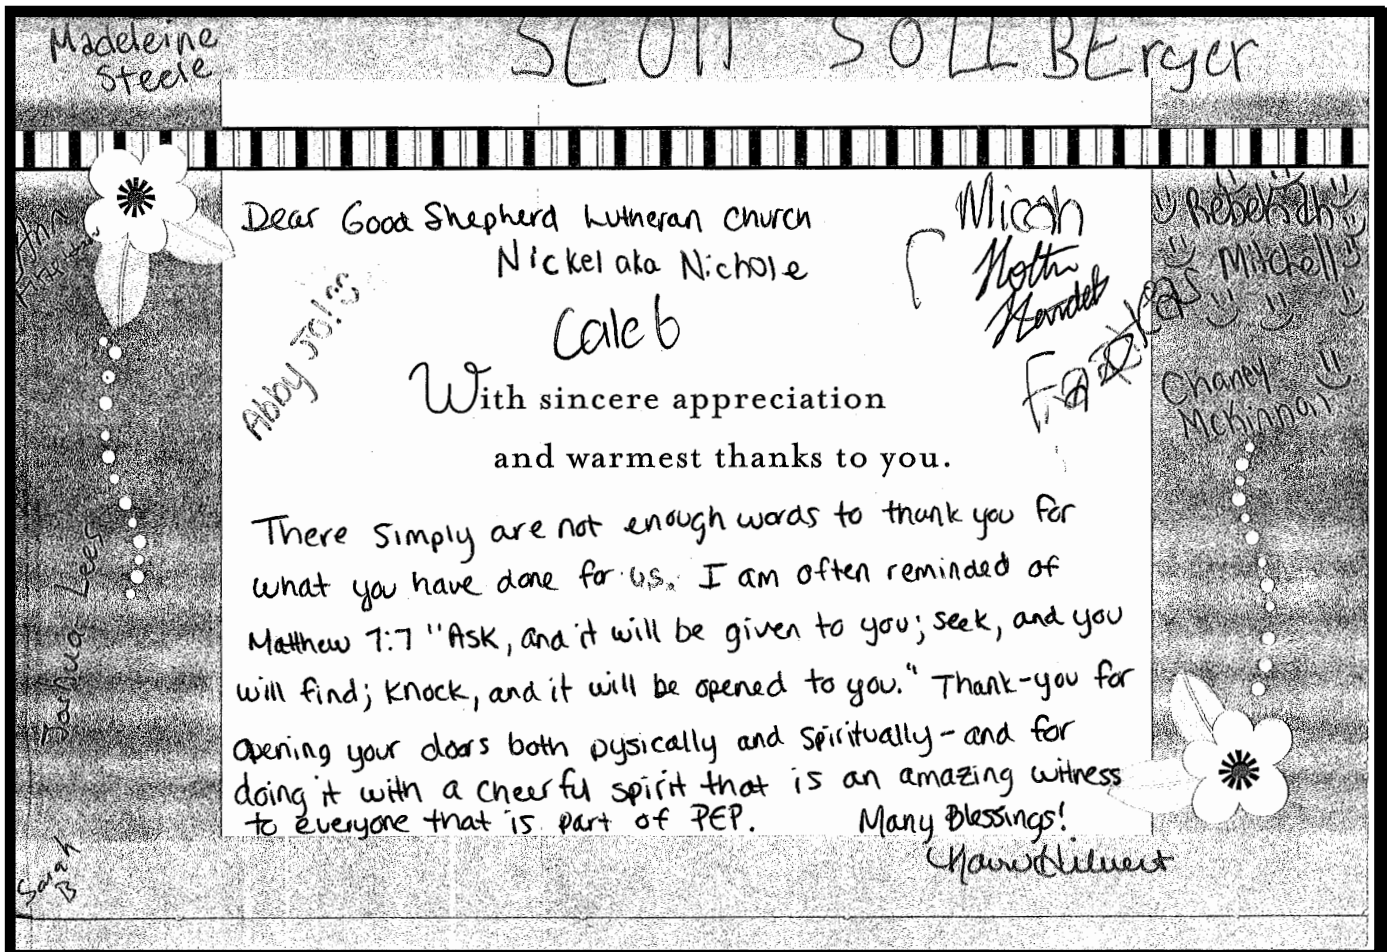 Madeleine
Steele
SCOTT SOLLBErger
Dear Good Shepherd Lutheran Church
Nickel aka Nichole
Caleb
Abby Jo!
Micah
Rebekah
Mitchell
Chaney
McKinnon
With sincere appreciation
and warmest thanks to you.
There simply are not enough words to thank you for
what you have done for us. I am often reminded of
Matthew 7:7 "Ask, and it will be given to you; seek, and you
will find; knock, and it will be opened to you." Thank-you for
opening your doors both pysically and spiritually - and for
doing it with a cheerful spirit that is an amazing witness
to everyone that is part of PEP. Many Blessings!
Joshua Lees
Sarah
B